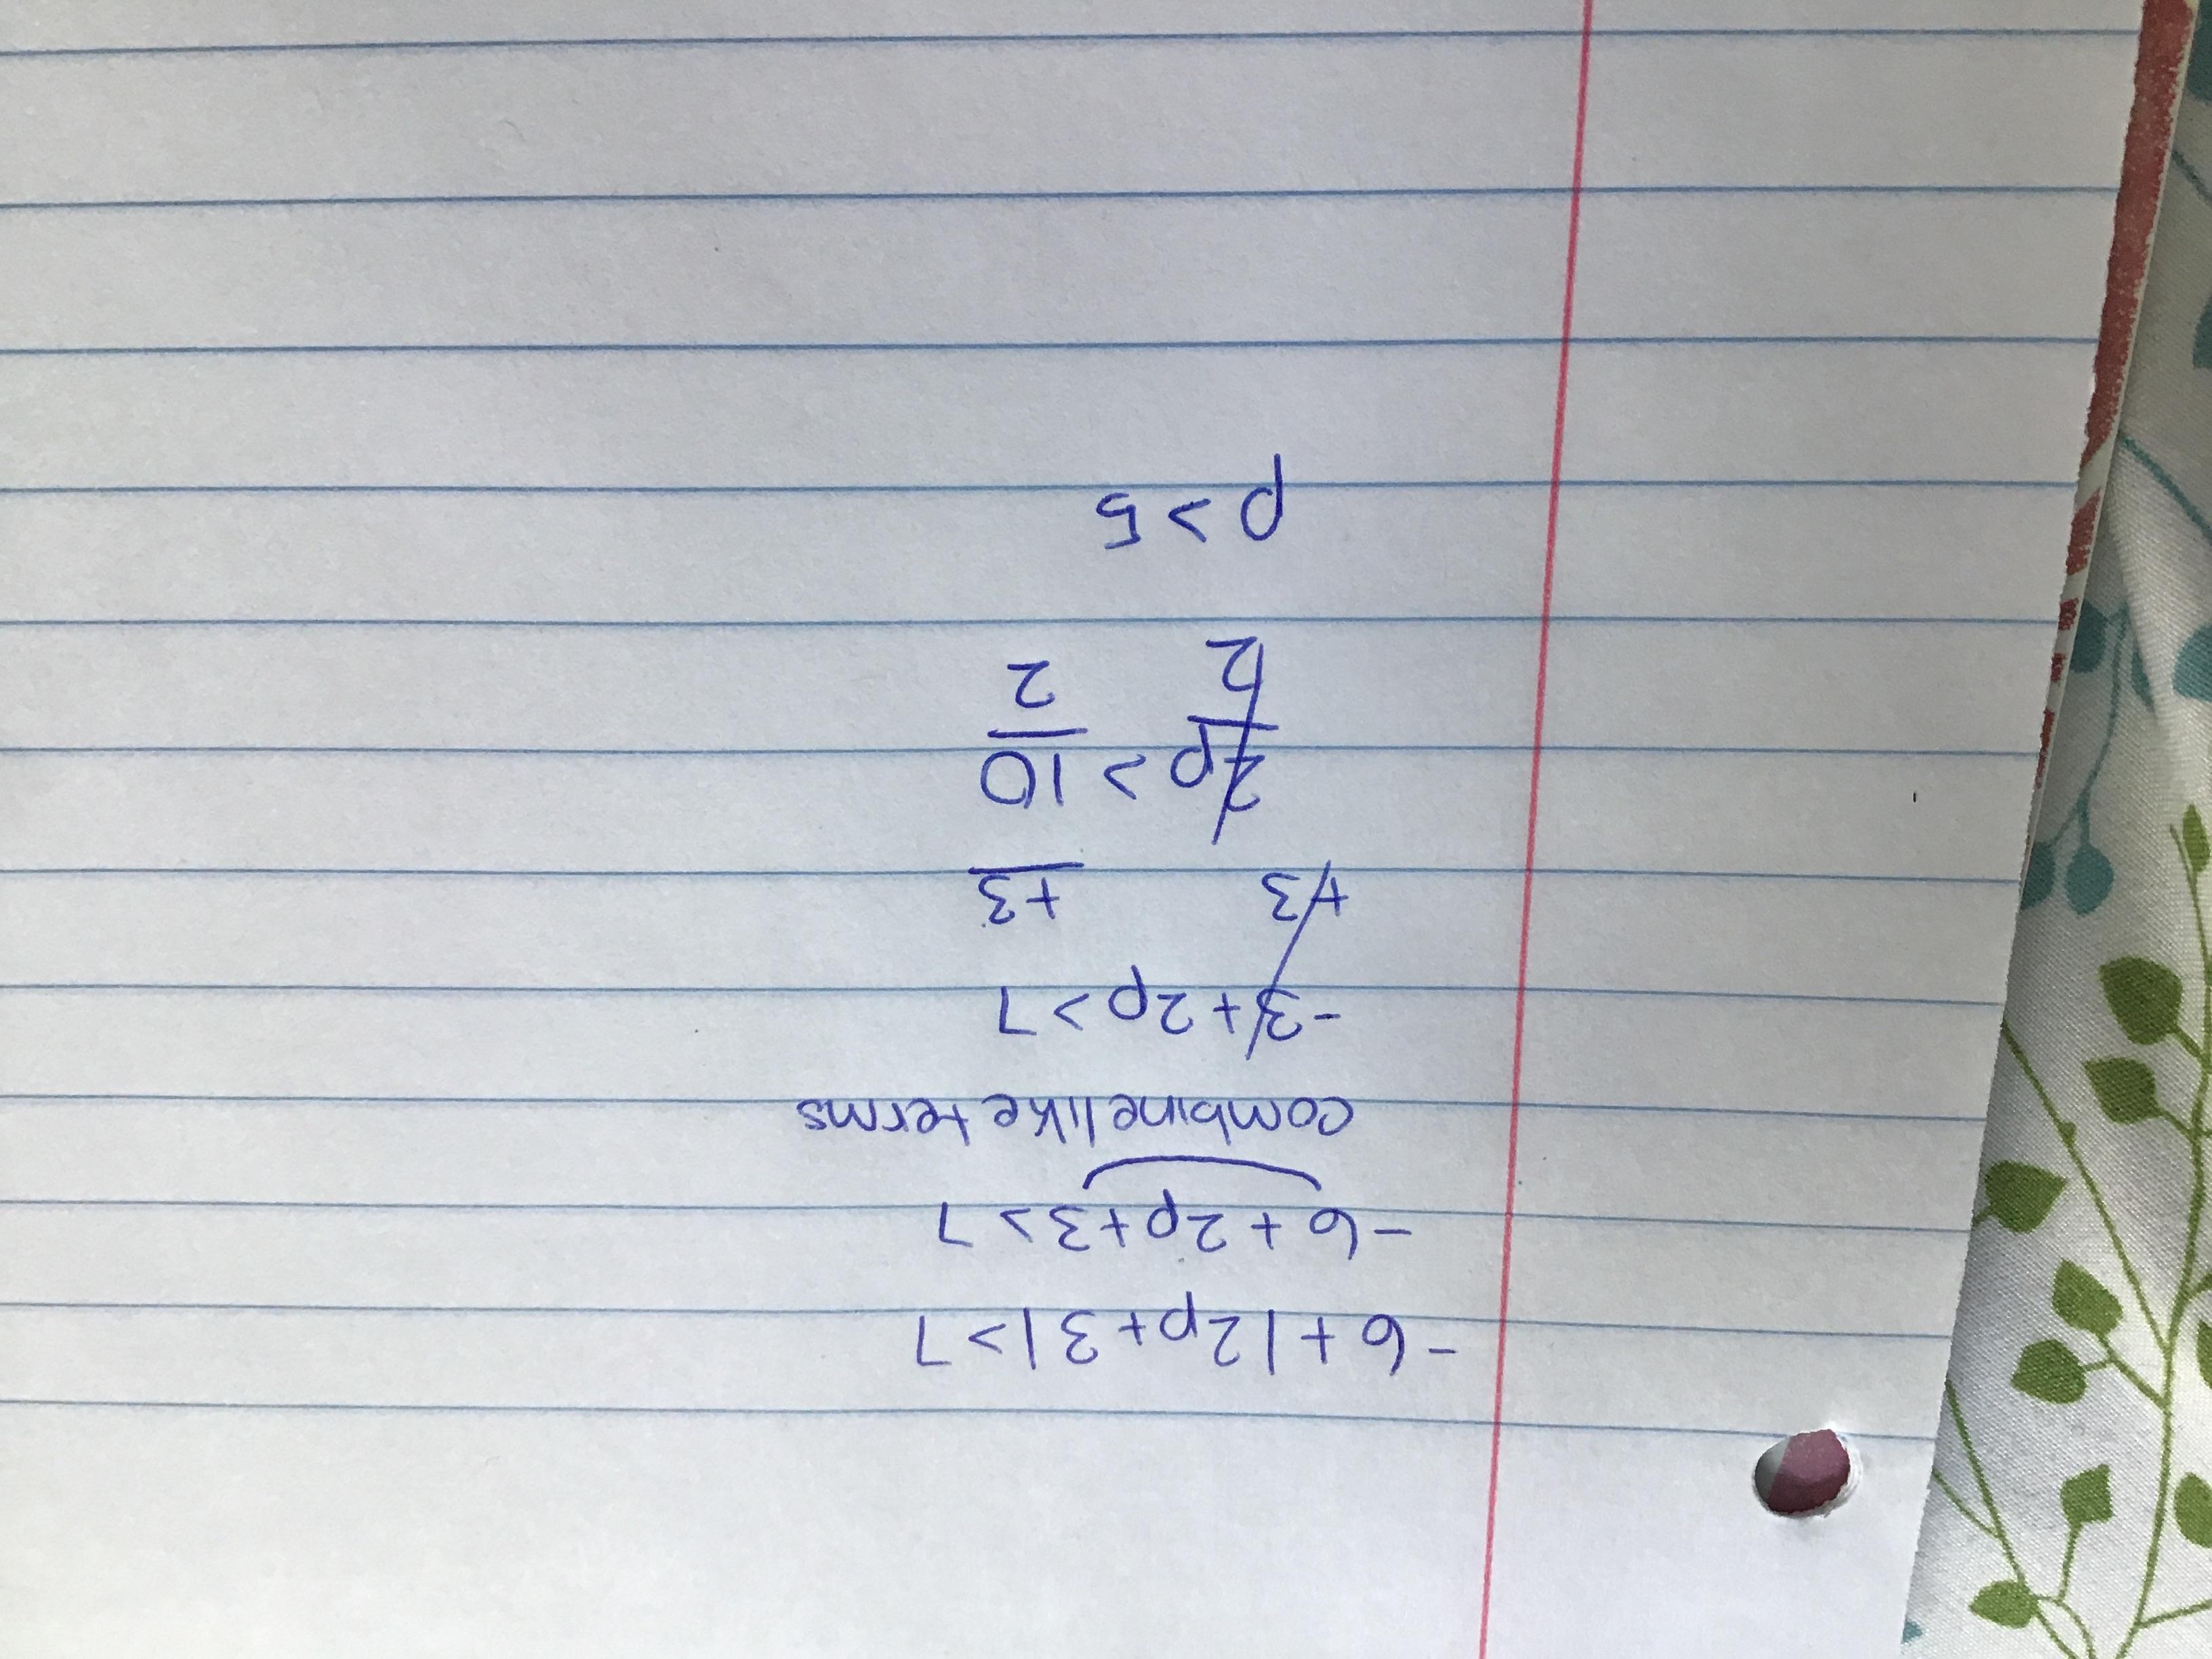 -6+|2p+3|>7
-6+2p+3>7
combine like terms
-3+2p>7
+3 +3
2p>10
2 2
p>5